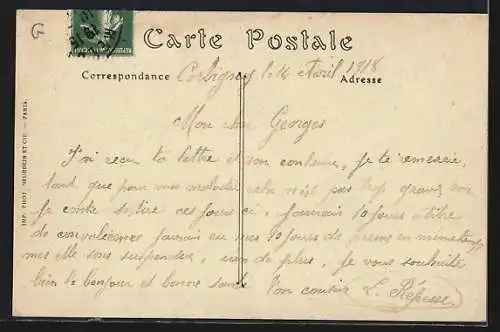 G
Carte Postale
Correspondance
Adresse
Corbigny le 14 Avril 1918
Mon cher Georges
J'ai reçu ta lettre et son contenu, je te remercie,
tant que pour mes maladies cela n'est pas trop grave
Je compte sortir ces jours ci, j'aurais 10 jours à titre
de convalescence j'aurais eu mes 10 jours de perme en même temps
mes elle sont suspendus, rien de plus, je vous souhaite
bien le bonjour et bonne santé Ton cousin L.
IMP. PHOT. NEURDEIN ET CIE. — PARIS.